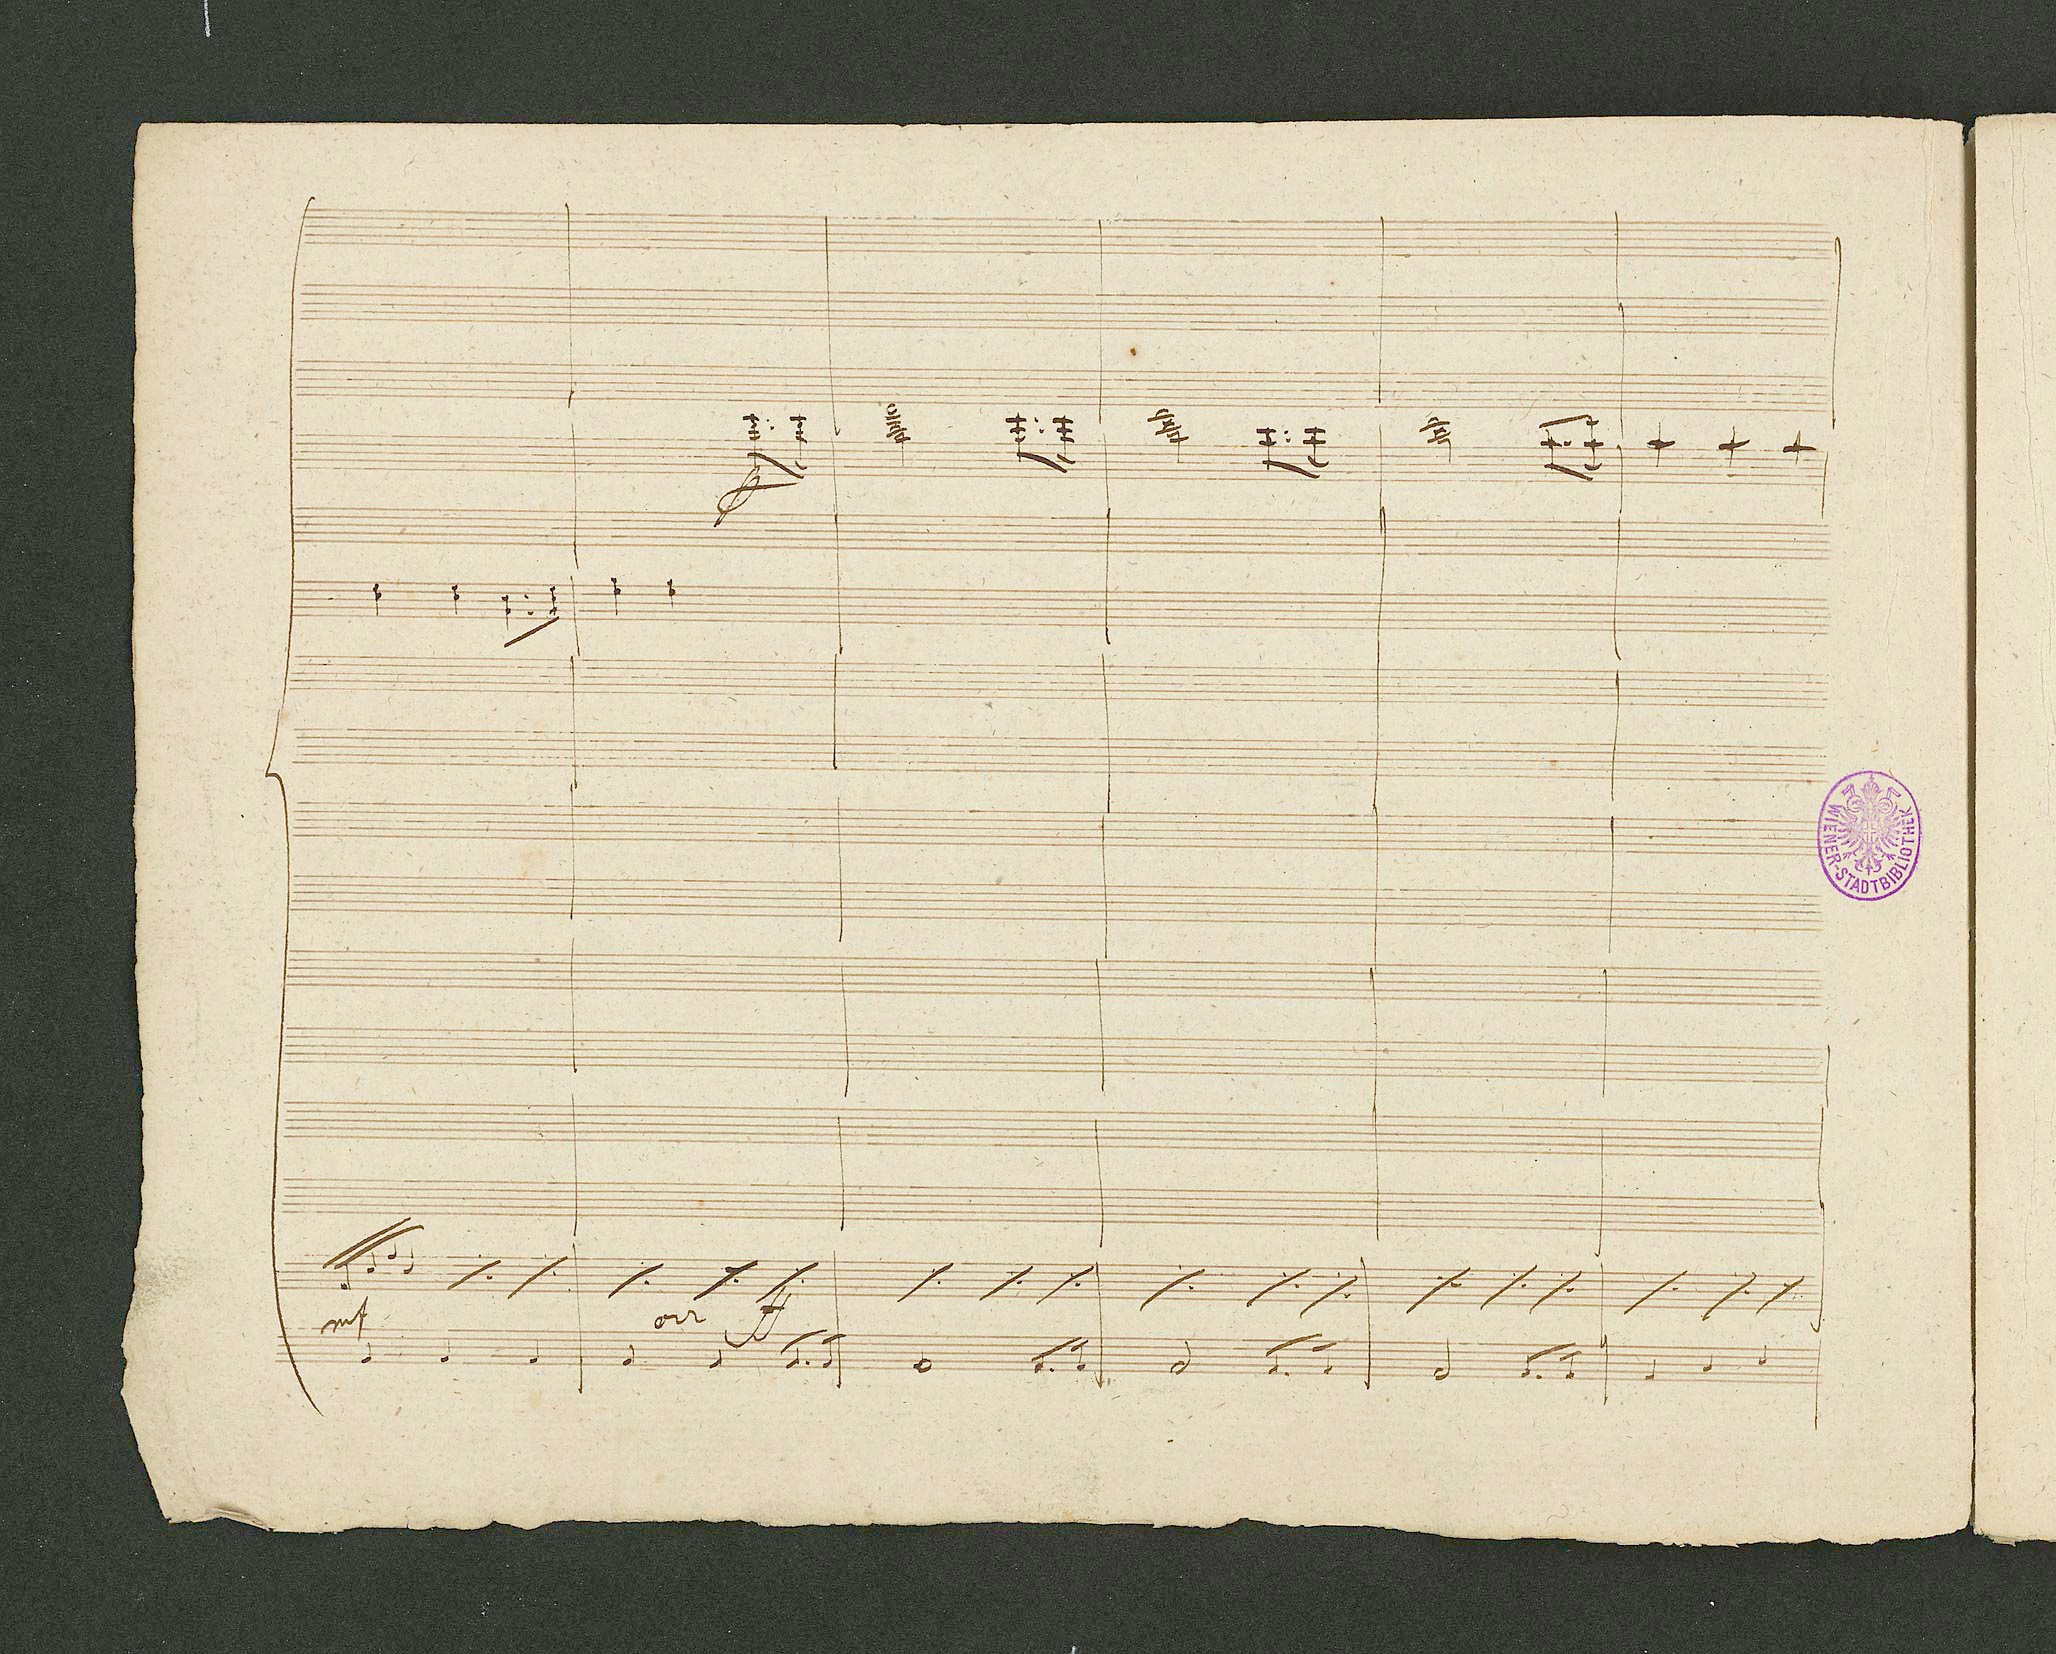 WIENER-STADTBIBLIOTHEK
mf
ff